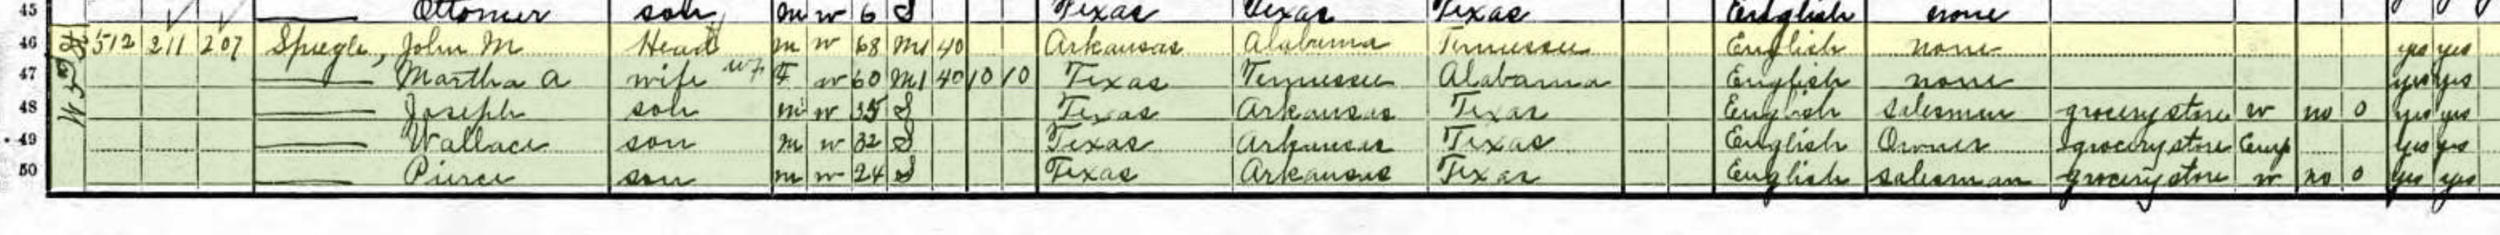 45 Ottomer son m w 6 S Texas Texas Texas English none
46 512 211 207 Spiegle, John M Head m w 68 M1 40 Arkansas Alabama Tennessee English none yes yes
47 Martha A wife F w 60 M1 40 10 10 Texas Tennessee Alabama English none yes yes
48 Joseph son m w 35 S Texas Arkansas Texas English salesman grocery store w no 0 yes yes
49 Wallace son m w 32 S Texas Arkansas Texas English Owner grocery store Emp yes yes
50 Pierce son m w 24 S Texas Arkansas Texas English salesman grocery store w no 0 yes yes